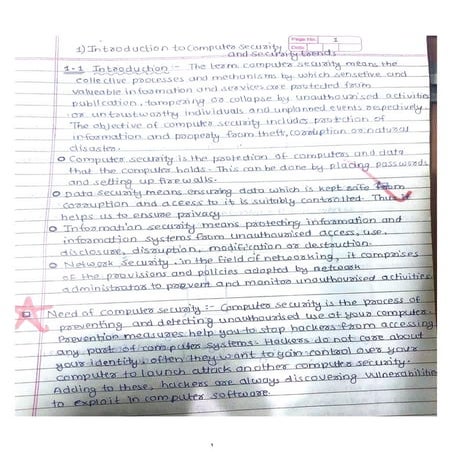 Page No. 1
Date
1) Introduction to Computer security
and security trends
1.1 Introduction :- The term computer security means the
collective processes and mechanisms by which sensetive and
valueable information and services are protected from
publication, tampering or collapse by unauthourised activities
or untrustworthy individuals and unplanned events respectively.
The objective of computer security includes protection of
information and property from theft, corruption or natural
disaster.
Computer security is the protection of computers and data
that the computer holds. This can be done by placing passwords
and setting up firewalls.
Data security means ensuring data which is kept safe from
corruption and access to it is suitably controlled. Thus it
helps us to ensure privacy
Information security means protecting information and
information systems from unauthourised access, use,
disclosure, disruption, modification or destruction.
Network security, in the field of networking, it comprises
of the provisions and policies adopted by network
administrator to prevent and monitor unauthourised activities.
Need of computer security :- Computer security is the process of
preventing and detecting unauthourised use of your computer.
Prevention measures help you to stop hackers from accessing
any part of computer systems. Hackers do not care about
your identity, often they want to gain control over your
computer to launch attack another computer security.
Adding to these, hackers are always discovering vulnerabilitie
to exploit in computer software.
1